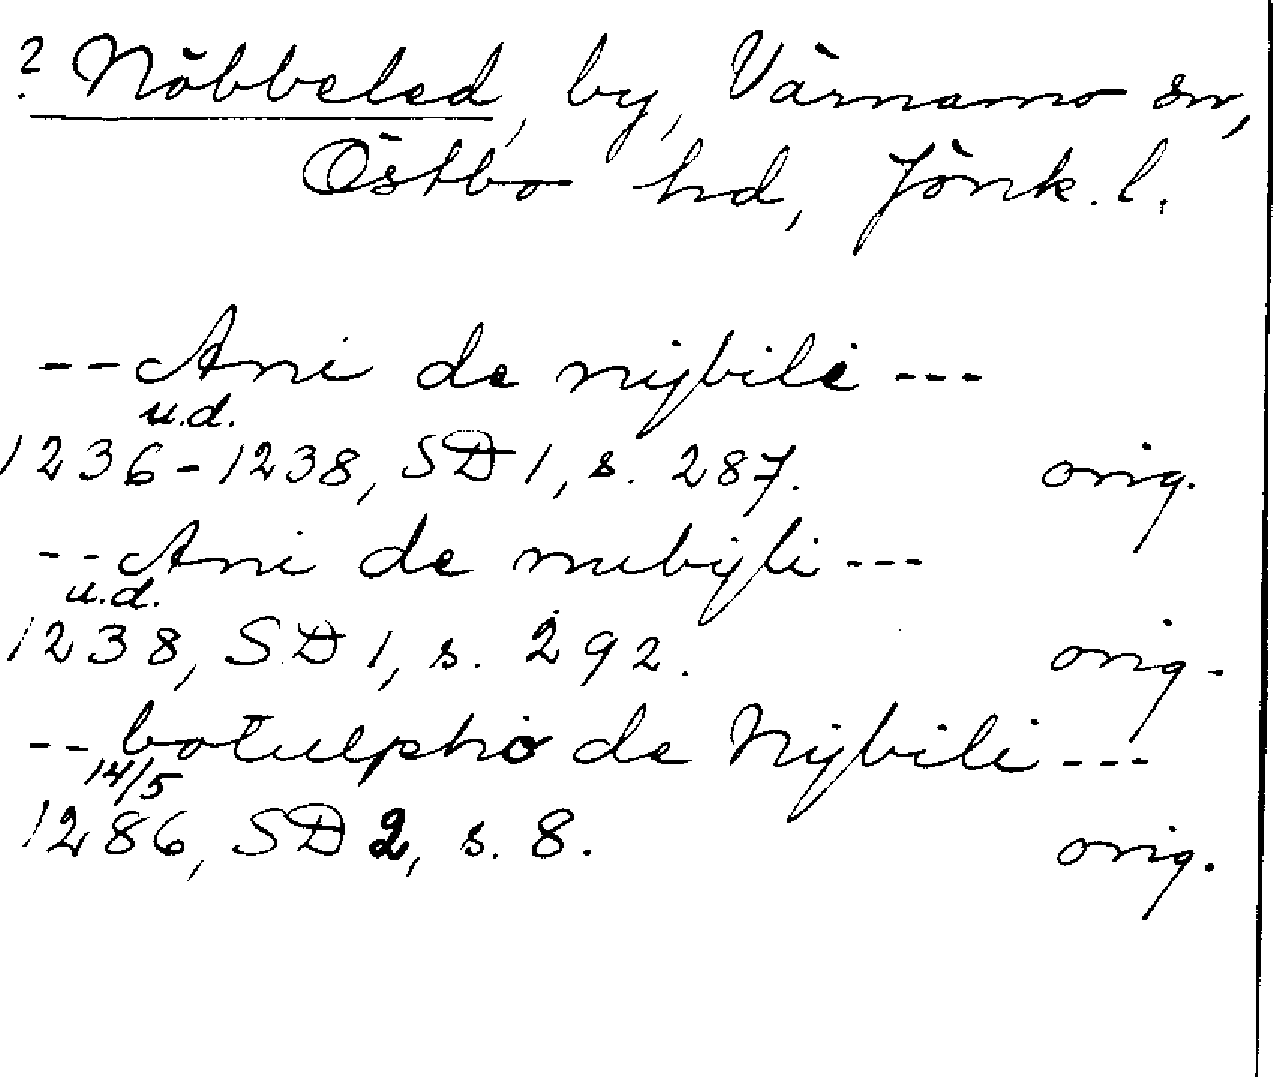 ? Nöbbeled, by, Värnamo sn,
Östbo hd, Jönk. l.
-- Ani de nijbile ---
u.d.
1236-1238, SD 1, s. 287. orig.
-- Ani de nubijli ---
u.d.
1238, SD 1, s. 292. orig.
-- botulpho de Nijbili ---
14/5
1286, SD 2, s. 8. orig.